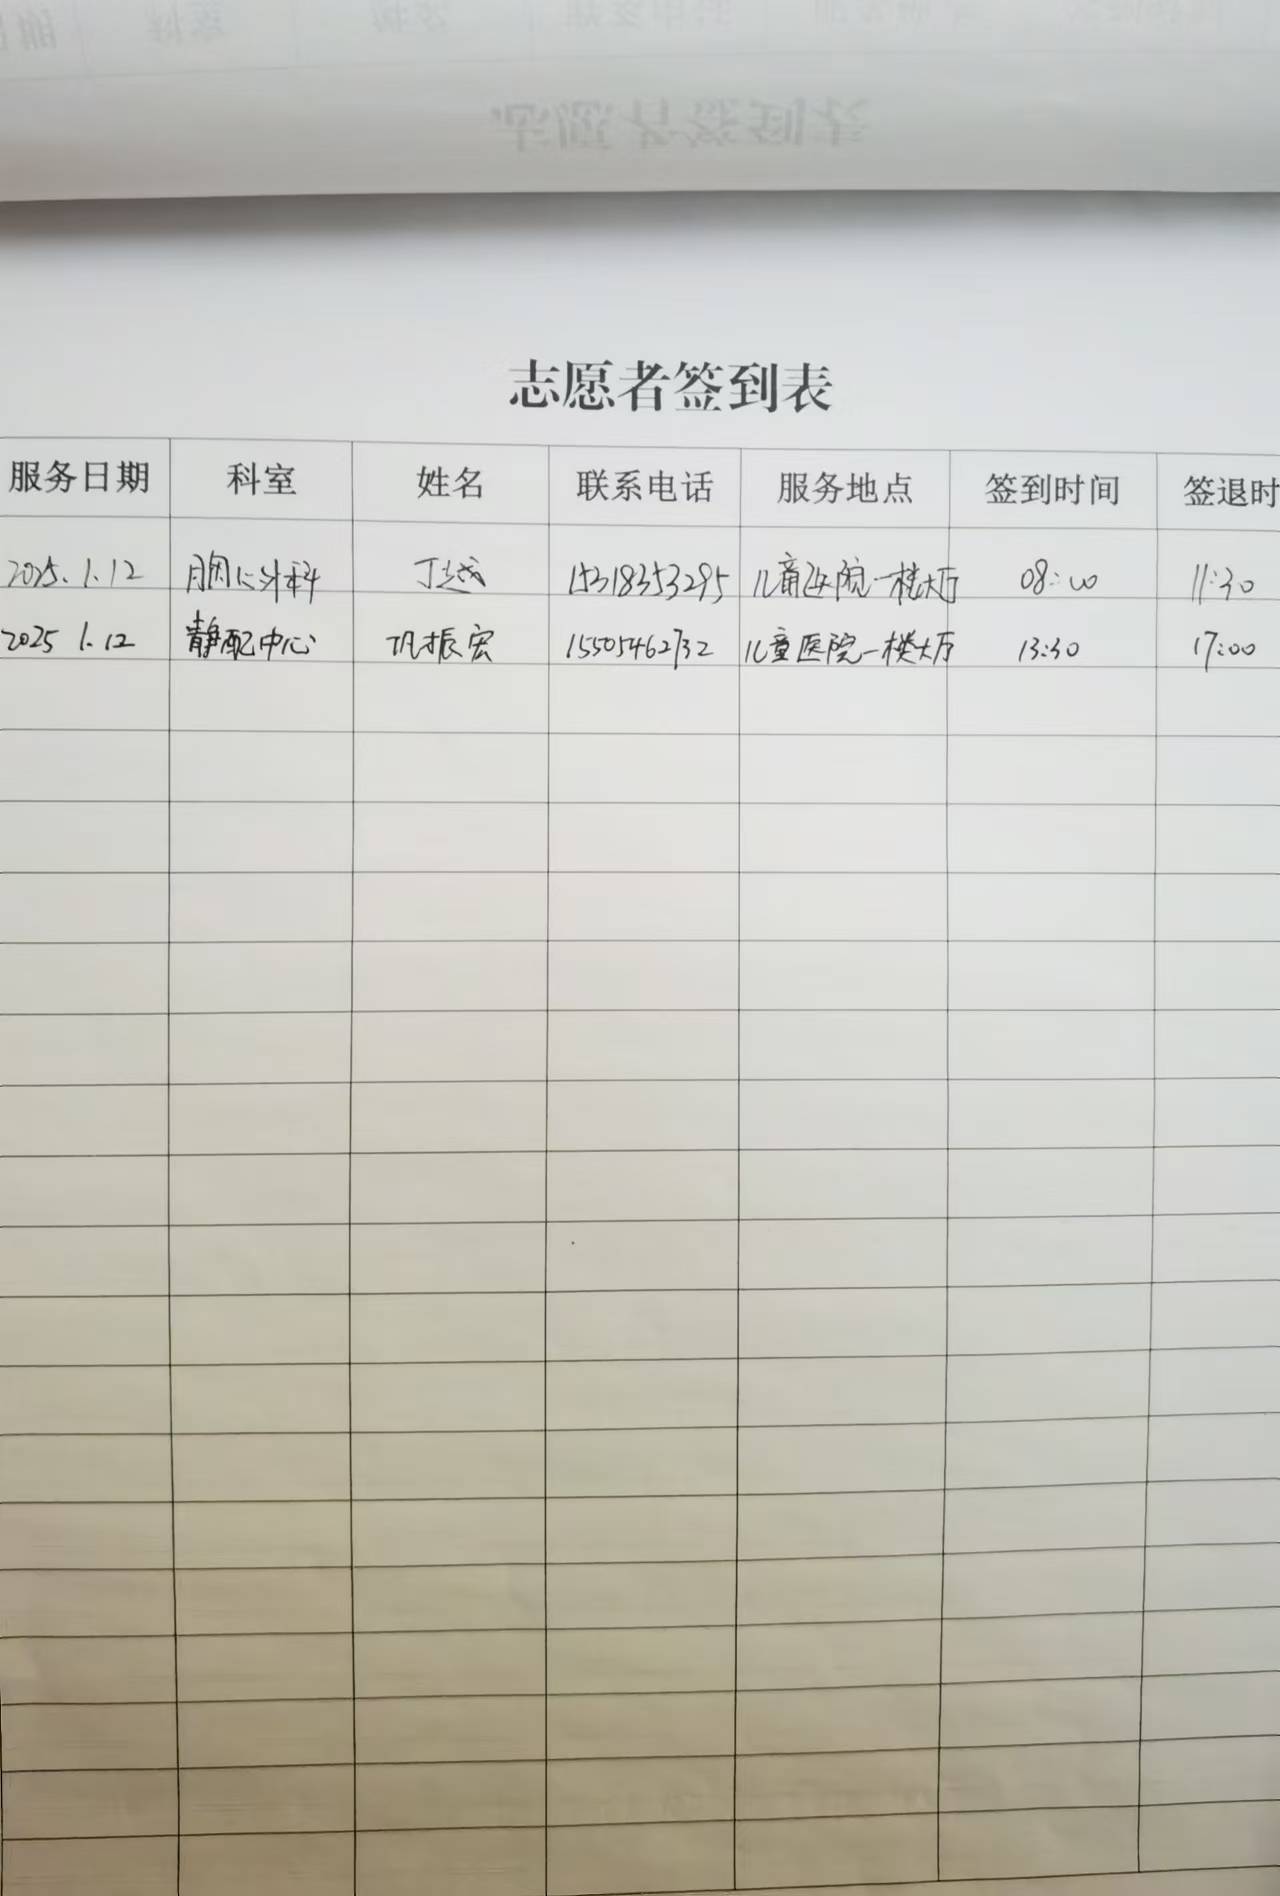 志愿者签到表
服务日期 科室 姓名 联系电话 服务地点 签到时间 签退时
2025.1.12 胸心外科 丁越 15318353295 儿童医院一楼大厅 08:00 11:30
2025 1.12 静配中心 巩振宏 15505462732 儿童医院一楼大厅 13:30 17:00